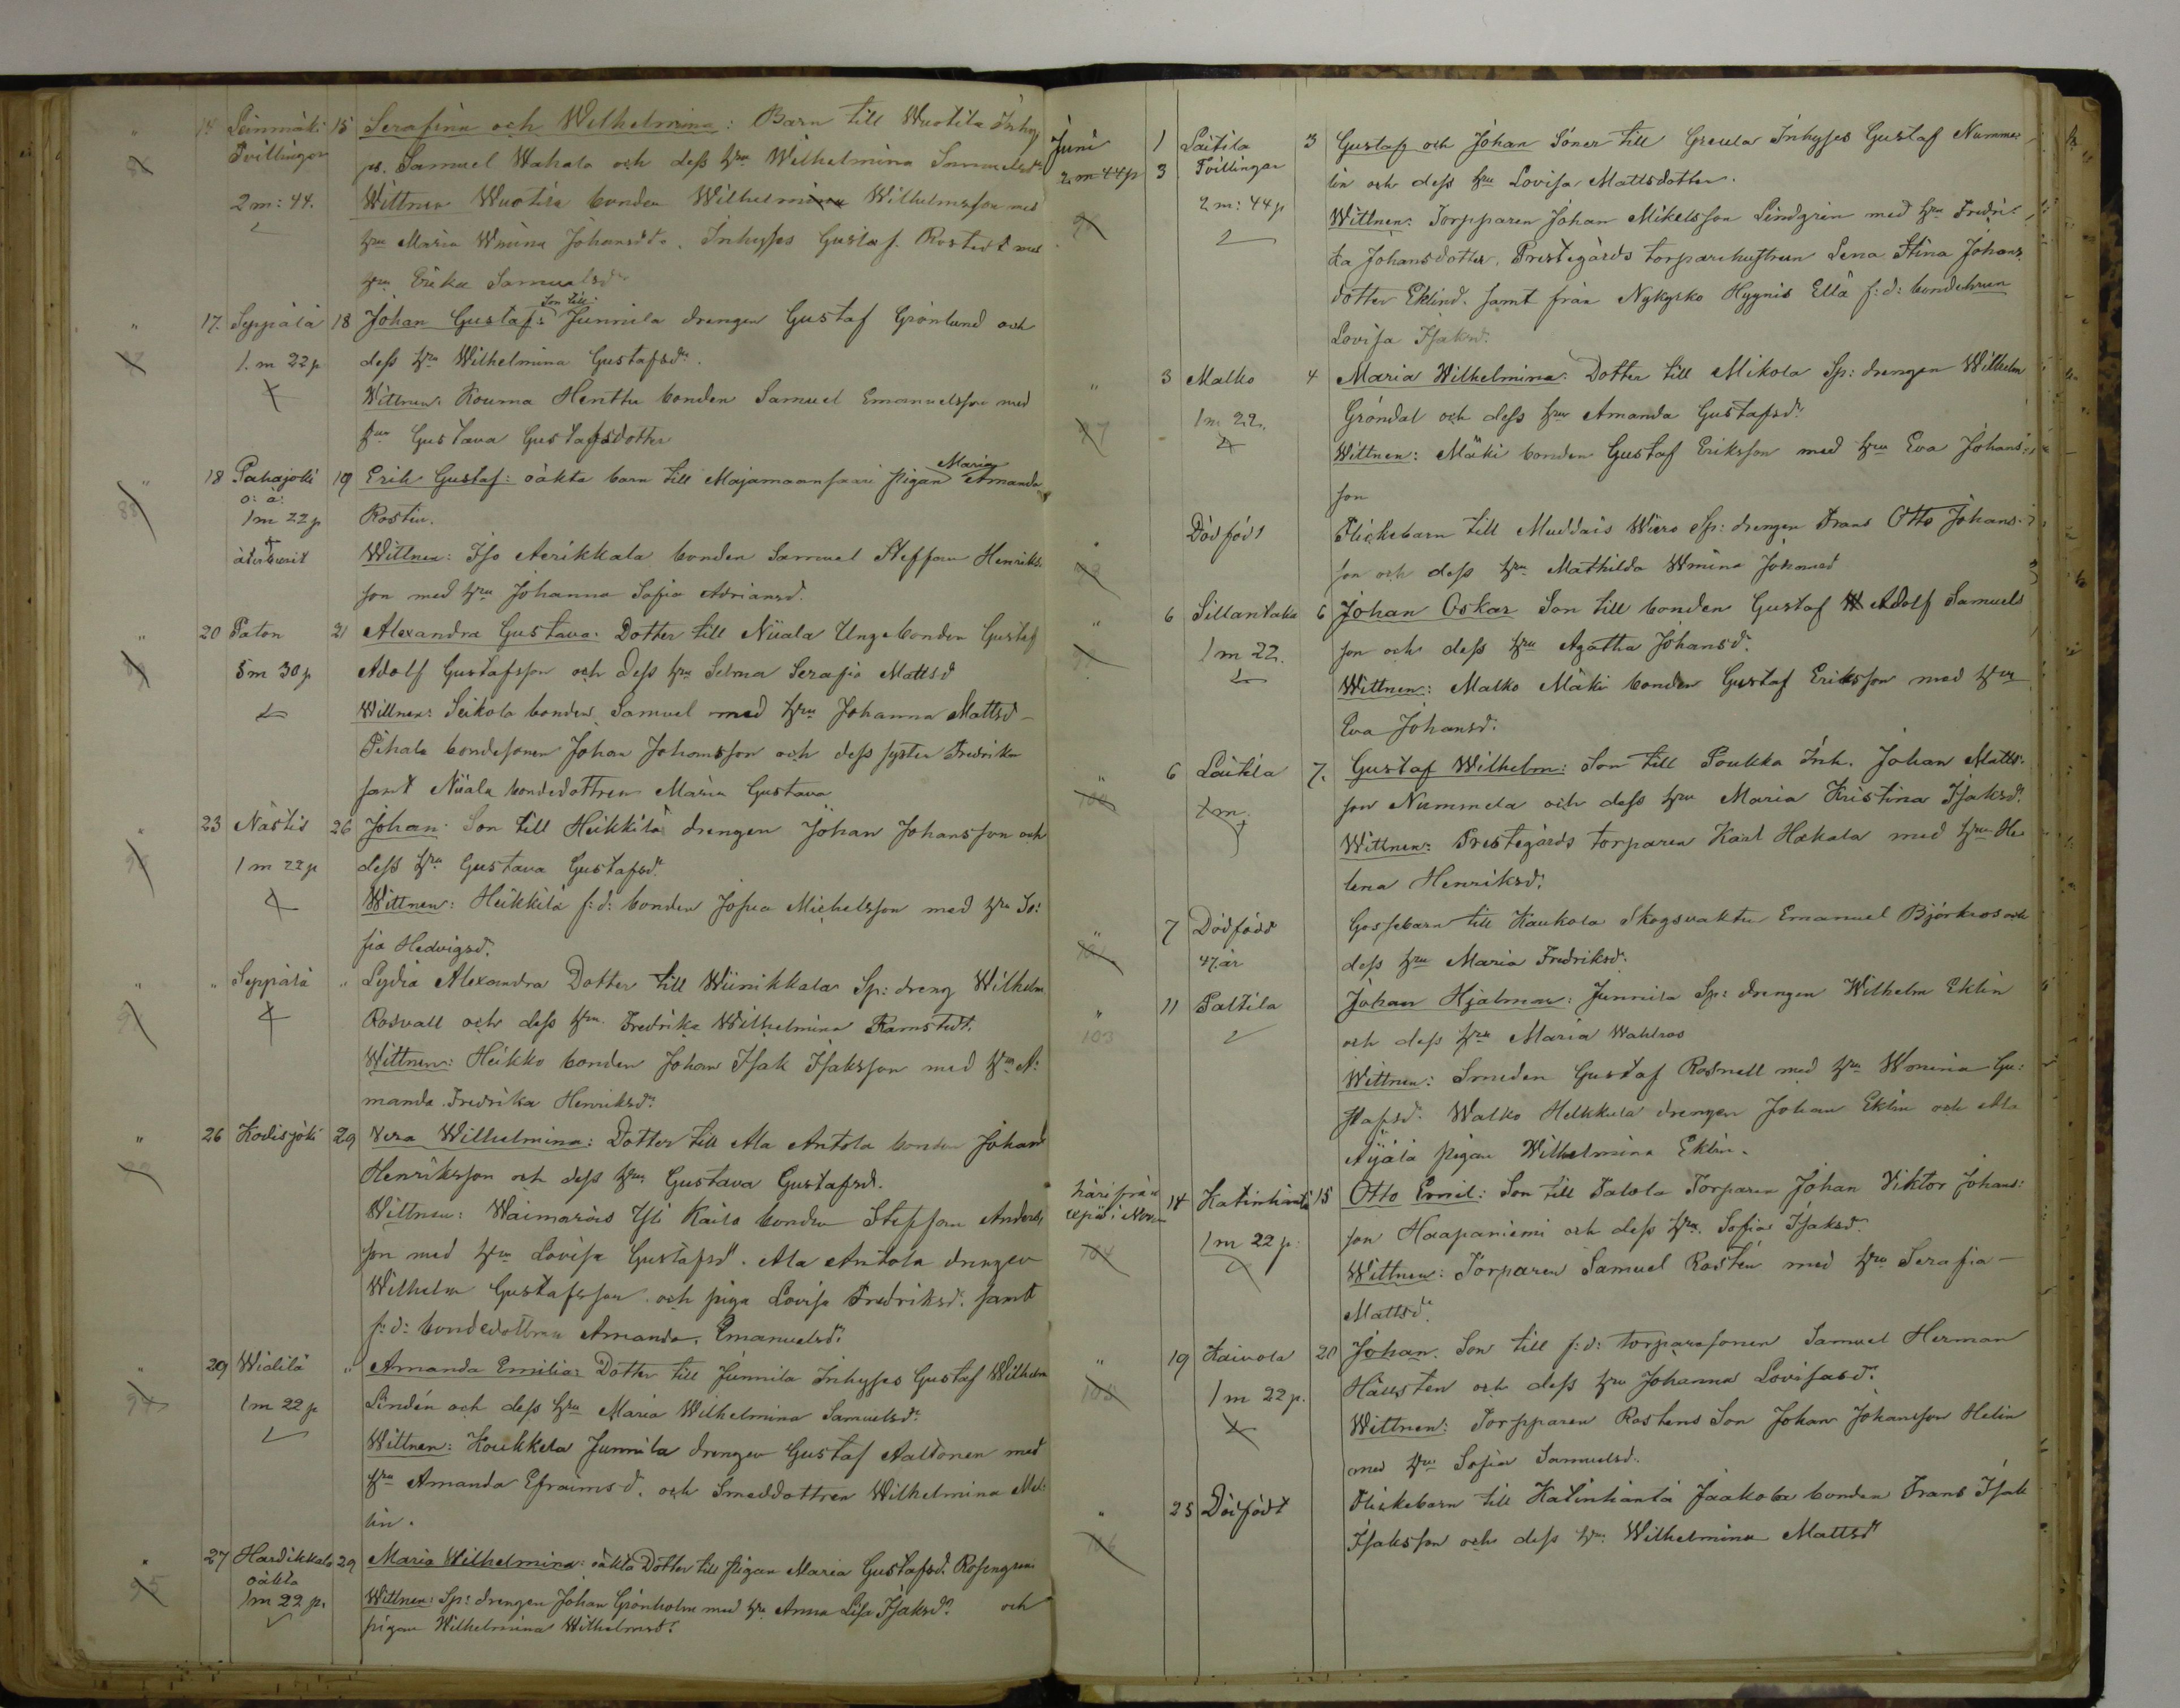 " 14 Seinmäki 15 Serafina och Wilhelmina: Barn till Wuotila Inhy
Tvillingar ps. Samuel Wahala och dess hru Wilhelmina Samuelsdr
2 m: 44. Wittnen Wuotila bonden Wilhelm Wilhelmsson med
hru Maria Wmina Johansdtr. Inhyses Gustaf Rostedt med
hru Erika Samuelsdr
" 17. Seppälä 18 Johan Gustaf: Son till: Junnila drengen Gustaf Grönlund och
1. m 22 p dess hru Wilhelmina Gustafsdr.
Wittnen. Kouma Henttu bonden Samuel Emanuelsson med
hru Gustava Gustafsdotter
" 18 Pahajoki 19 Erik Gustaf: oäkta barn till Majamaansaari pigan Maria Amanda
o: ä:
1 m 22 p Rostin.
återburit Wittnen: Iso Aerikkala bonden Samuel Steffan Henriks
son med hru Johanna Sofia Adriansd.
" 20 Paton 21 Alexandra Gustava. Dotter till Niiala Unge bonden Gustaf
5 m 30 p Adolf Gustafsson och dess hru Selma Serafia Mattsd
Wittnen: Seikola bonden Samuel med hru Johanna Mattsd
Pihala bondesonen Johan Johansson och dess syster Fredrika
samt Niiala bondedottren Maria Gustava
" 23 Nästis 26 Johan. Son till Heikkilä drengen Johan Johansson och
1 m 22 p dess hru Gustava Gustafsd.
Wittnen: Heikkilä f: d: bonden Josua Michelsson med hru So:
fia Hedvigsd.
" " Seppälä " Lydia Alexandra Dotter till Wiinikkala Sp: dreng Wilhelm
91 Rosvall och dess hru Fredrika Wilhelmina Ramstedt.
Wittnen: Heikko bonden Johan Isak Isaksson med hru A:
manda Fredrika Henriksdr
" 26 Kodisjoki 29 Vera Wilhelmina: Dotter till Ala Antola bonden Johan
Henriksson och dess hru Gustava Gustafsd.
Wittnen: Waimarois Yli Kaila bonden Steffan Anders
son med hru Lovisa Gustafsd. Ala Antola drengen
Wilhelm Gustafsson och piga Lovisa Fredriksd. samt
f: d: bondedottren Amanda Emanuelsd.
" 29 Widilä " Amanda Emilia: Dotter till Junnila Inhyses Gustaf Wilhelm
94 1 m 22 p Lindén och dess hru Maria Wilhelmina Samuelsdr
Wittnen: Koukkela Junnila drengen Gustaf Aaltonen med
hru Amanda Efraimsd. och Smeddottren Wilhelmina Mel:
lin.
" 27 Hardikkala 29 Maria Wilhelmina: oäkta Dotter till pigan Maria Gustafsd. Rosengren
oäkta
95 1 m 22 p. Wittnen: Sp: drengen Johan Grönholm med hru Anna Lisa Isaksdr och
pigan Wilhelmina Wilhelmsd.
Juni 1 Laitila 3 Gustaf och Johan Söner till Greula Inhyses Gustaf Numme:
2 m 44 p 3 Tvillingar lin och dess hru Lovisa Mattsdotter.
2 m: 44 p Wittnen: Torpparen Johan Mikelsson Lindgrin med hru Fredri:
ka Johansdotter. Prestegårds torparehustrun Lena Stina Johans
dotter Eklind. samt från Nykyrko Hygnis Ella f: d: bondehrun
Lovisa Isaksd.
" 3 Malko 4 Maria Wilhelmina: Dotter till Mikola Sp: drengen Wilhelm
97 1 m 22. Gröndal och dess hru Amanda Gustafsdr
Wittnen: Mäki bonden Gustaf Eriksson med hru Eva Johans:
son
" Dödfödt Flickebarn till Muddais Wiero Sp: drengen Frans Otto Johans
98 son och dess hru Mathilda Wmina
" 6 Sillantaka 6 Johan Oskar Son till bonden Gustaf Adolf Samuels
99 1 m 22. son och dess hru Agatha Johansd.
Wittnen: Malko Mäki bonden Gustaf Eriksson med hru
Eva Johansd:
" 6 Laitila 7. Gustaf Wilhelm: Son till Poukka Inh. Johan Matts:
100 son Nummela och dess hru Maria Kristina Isaksd.
Wittnen: Prestegårds torparen Karl Hakala med hru He
lena Henriksd.
" 7 Dödfödd Gossebarn till Kaukola Skogsvaktu Emanuel Björkroos och
47. år dess hru Maria Fredriksd.
" 11 Paltila Johan Hjalmar: Junnila Sp: drengen Wilhelm Eklin
103 och dess hru Maria Wahlroos
Wittnen: Smeden Gustaf Rosnell med hru Wmina Gu:
stafsd. Walko Heikkilä drengen Johan Eklin och Ala
Äijälä pigan Wilhelmina Eklin.
härifrån 14 Katinhäntä 15 Otto Emil: Son till Palola Torparen Johan Viktor Johans:
104 1 m 22 p. son Haapaniemi och dess hru. Sofia Isaksd.
Wittnen: Torparen Samuel Rostén med hru Serafia
Mattsdr.
" 19 Kaivola 20 Johan. Son till f: d: torparesonen Samuel Herman
105 1 m 22 p. Hällsten och dess hru Johanna Lovisasdr.
Wittnen: Torpparen Rostens Son Johan Johansson Helin
med hru Sofia Samuelsd.
" 25 Dödfödt Flickebarn till Katinhäntä Jaakola bonden Frans Isak
106 Isaksson och dess hru. Wilhelmina Mattsdr